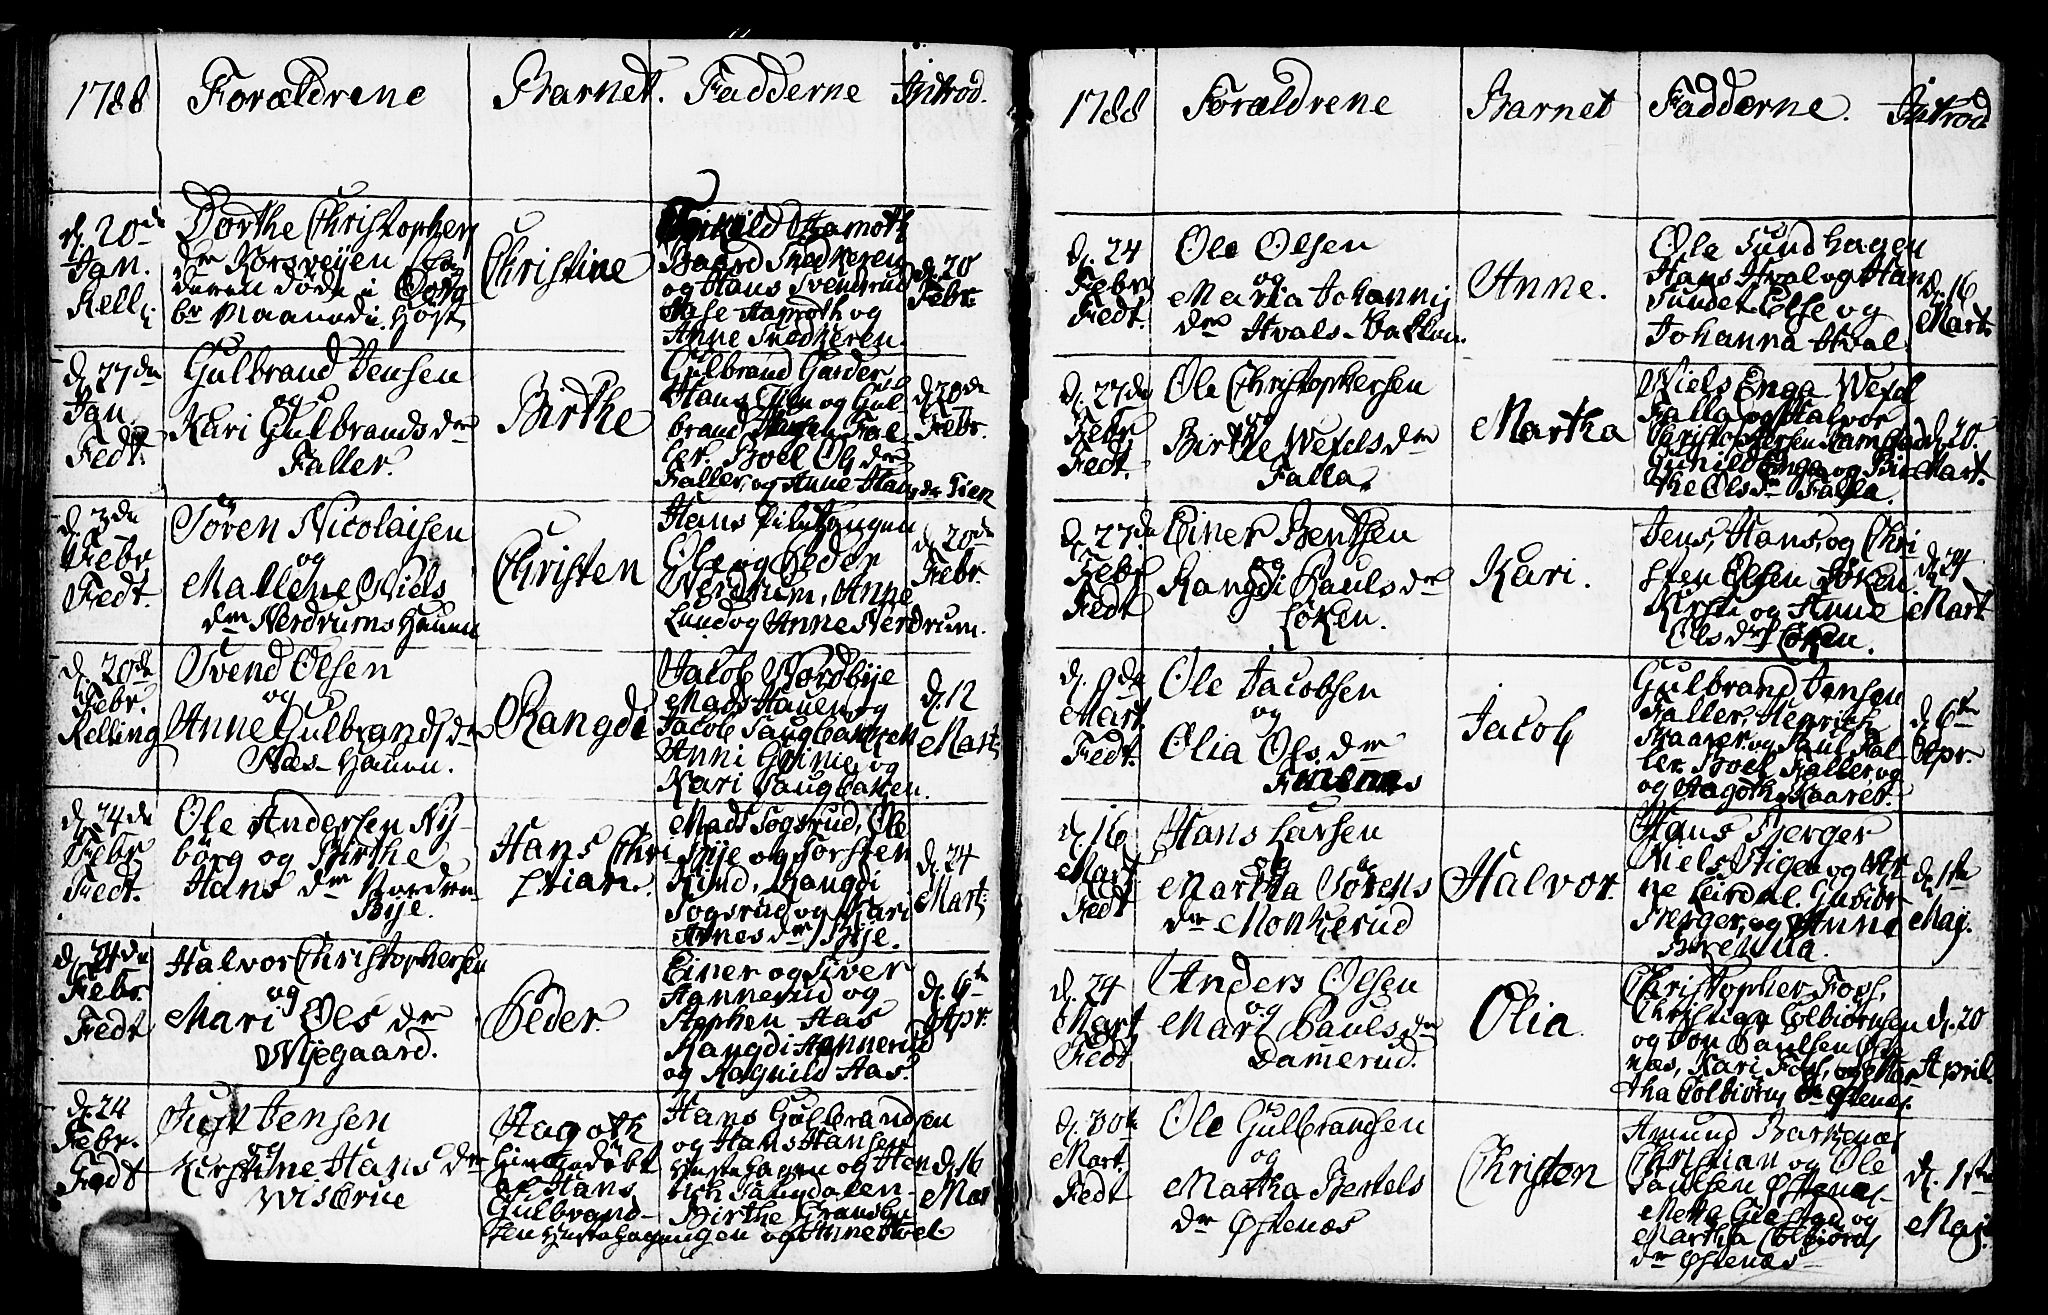 1788
Forældrene
Barnet.
Fadderne
Introd.
d. 20de
Jan.
Kelli
Dorthe Christophers
dr Korsveijen
deren döde i
br Maaned i Höst
Christine
Hamoth
Baard Snedkeren
og Hans Svendsrud
Aase Hamoth og
Anne Snedkeren.
d. 20
Febr.
d. 27de
Jan
Fedt.
Gulbrand Jensen
og
Kari Gulbrandsdr
Faller.
Birthe
Gulbrand Garder
Hans og Gul
brand Fal-
ler. Boel Ols dr
Faller, og Anne Hans dr Lien
d. 20de
Febr.
d. 3de
Febr
Fedt.
Sören Nicolaisen
og
Mallene Niels
dr Nerdrums Hauen
Christen
Hans
Ole og Peder
Nerdrum, Anne
Lund og Anne Nerdrum.
d. 20de
Febr.
d. 20de
Febr.
Kelling
Svend Olsen
og
Anne Gulbrands dr
Næs-Hauen.
Rangdi
Jacob Nordbye
Mads Hauen og
Jacob Haugbakken
Anni Grime og
Kari Haugbakken.
d. 12
Mart.
d. 24de
Febr
Fedt.
Ole Andersen Ny-
borg og Birthe
Hans dr Nordre
Bye.
Hans Chri
stian.
Mads Sogsrud, Ole
Bije og Torsten
Rangdi
Sogsrud og Kari
Arnes dr Bije.
d. 24
Mart.
d. 24de
Febr.
Fedt
Halvor Christophersen
og
Mari Ols dr
Nijegaard.
Peder.
Einer og Siver
Hannerud og
Stephen Aas
Rangdi Hannerud
og Ragnild Aas.
d. 6te
Apr.
d. 24
Febr.
Fedt
Just Jensen
og
Kirstine Hans dr
Visterue
Aagoth
af Hans
Gulbrand-
sen
Hans Gulbrandsen
og Hans Hansen
og Hen
rich Haugdalen-
Birthe
ungen og Anne
d. 16
Mar
1788
Forældrene
Barnet
Fadderne.
Introd
d. 24
Febr
Fedt.
Ole Olsen
og
Maria Johannis
dr Hvals-bakken.
Anne.
Ole Sundhagen
Hans Hval og Hans
Sundet Else og
Johanna Hval
d. 16
Mart.
d. 27de
Febr
Fedt.
Ole Christophersen
og
Birthe Wexelsdr
Falla.
Martha
Niels Enga Wexel
Falla og Halvor
Christophersen
Gunild Enga og Bir
the Ols dr Falla.
d. 20.
Mart.
d. 27de
Febr
Fedt
Einer Bentsen
og
Rangdi Pauls dr
Löken.
Kari.
Jens, Hans, og Chri
sten Olsen Löken
Kirsti og Anne
Ols dr Löken.
d. 24
Mart
d. 9de
Mart.
Fedt.
Ole Jacobsen
og
Olia Ols dr
Jacob
Gulbrand Jensen
Faller, Henrich
Skaarer og Poul Fal-
ler. Boel Faller og
og Aagoth Skaarer.
d. 6te
Apr.
d. 16
Mart
Fedt
Hans Larsen
og
Martha Sörens
dr Monkerud
Halvor.
Hans Bjerger
Niels Stigen og Ar
ne Lurdal. Gunbor
og Anne
d. 1te
Maj.
d. 24
Mart
Fedt
Anders Olsen
og
Mart Pauls dr
Damerud.
Olia
Christopher Foss,
Christian Colbiörnsen
og Jon Paulsen Øste
næs, Kari Foss, og Mar
tha Colbiörns dr Østenæs.
d. 20
April.
d. 30te
Mart.
Fedt
Ole Gulbrandsen
og
Martha Bertels
dr Østenæs
Christen
Amund Barkenæs
Christian og Ole
Paulsen Østenæs
Mette Gulstad og
Martha Colbiörns
dr Østenæs
d. 1ste
Maji